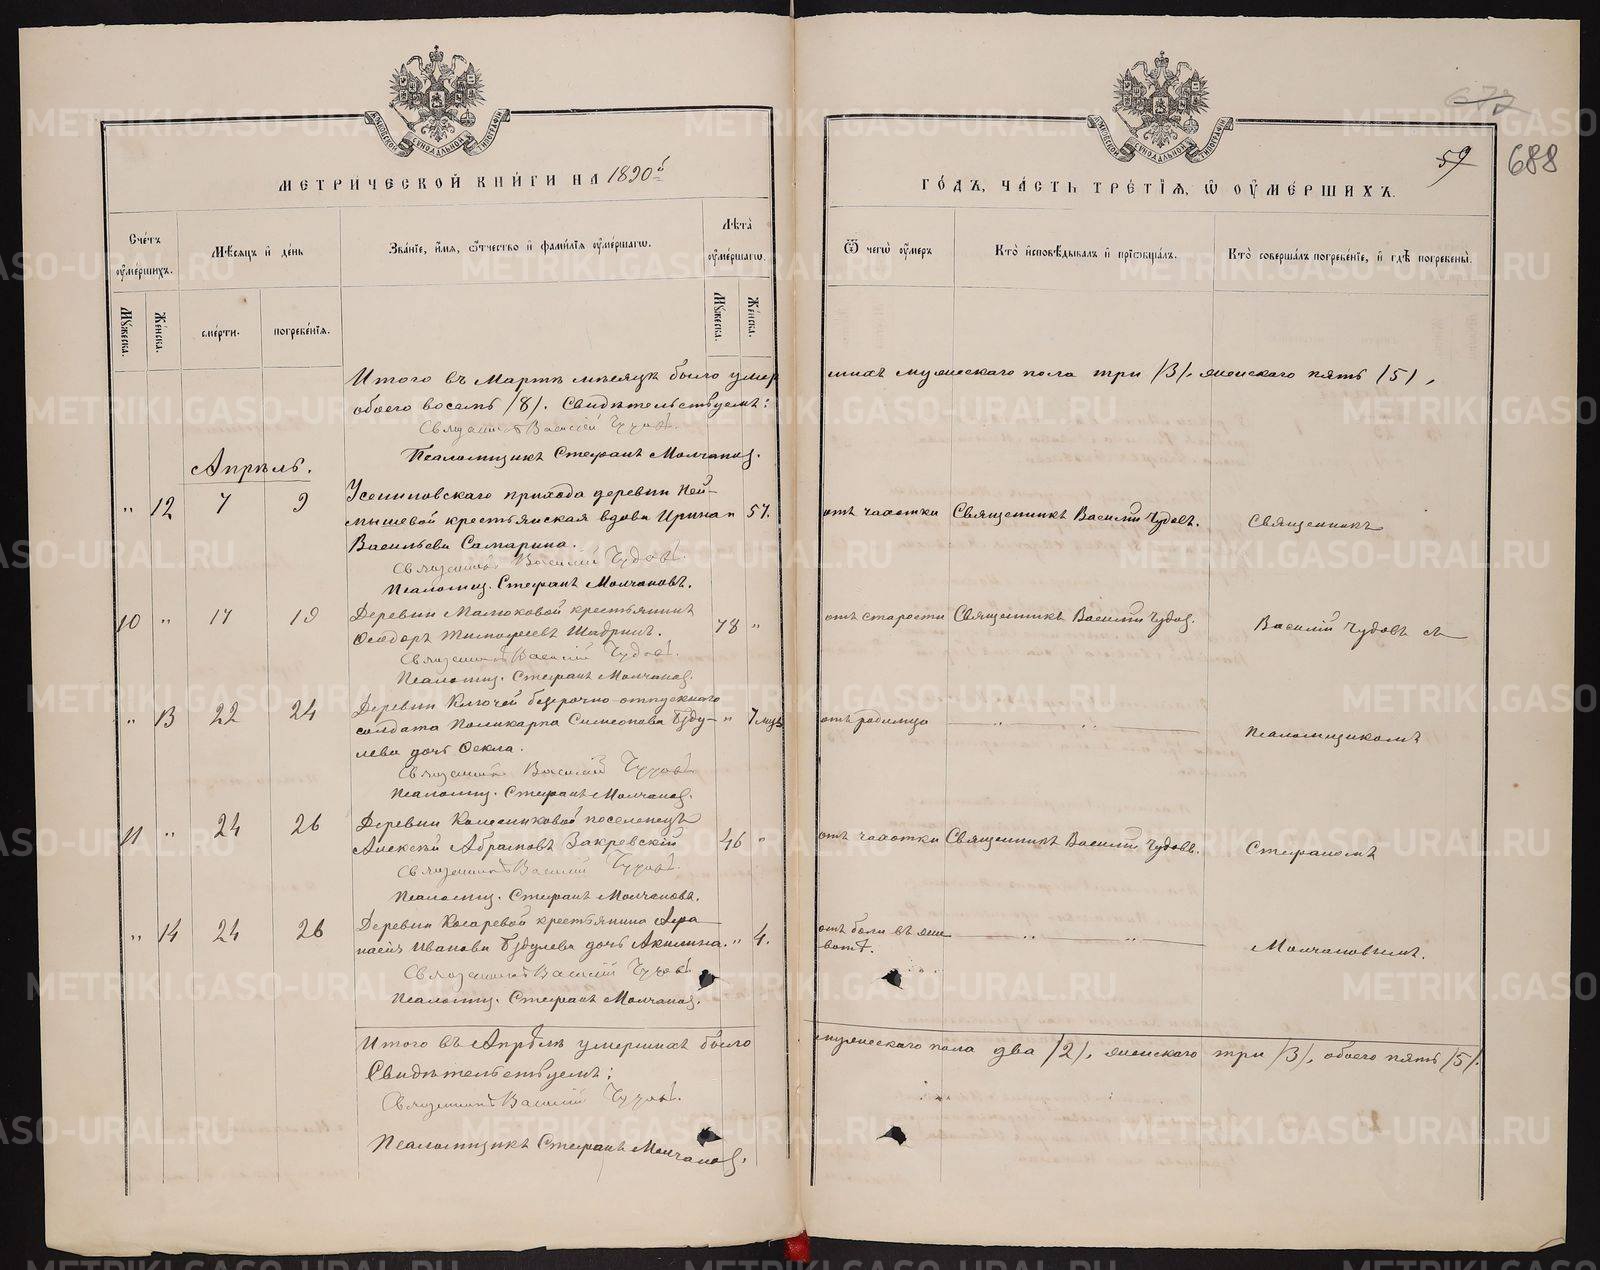 МЕТРИЧЕСКОЙ КНИГИ НА 1890й
ГОДЪ, ЧАСТЬ ТРЕТІЯ, Ѿ ОУМЕРШИХЪ.
59
688
Счетъ оумершихъ.
Мѣсяцъ и день
Званіе, имя, отчество и фамилія оумершагѡ.
Лѣта оумершагѡ.
Ѿ чегѡ оумеръ
Кто исповѣдывалъ и пріобщалъ.
Кто совершалъ погребеніе, и гдѣ погребены.
Мужеска.
Женска.
смерти.
погребенія.
Мужеска.
Женска.
Итого въ Мартѣ мѣсяцѣ было умер
шихъ мужескаго пола три /3/, женскаго пять /5/,
обоего восемь /8/. Свидѣтельствуемъ:
Священникъ Василій Чудовъ.
Псаломщикъ Стефанъ Молчановъ.
Апрѣль.
" 12 7 9
Усениновскаго прихода деревни Ней-
мышевой крестьянская вдова Ирина " 57.
Васильева Самарина.
отъ чахотки Священникъ Василій Чудовъ. Священникъ
Священникъ Василій Чудовъ
Псаломщ. Стефанъ Молчановъ.
10 " 17 19
Деревни Малюковой крестьянинъ
Ѳеодоръ Тимофеевъ Шадринъ. 78 "
отъ старости Священникъ Василій Чудов. Василій Чудовъ съ
Священникъ Василій Чудовъ.
Псаломщ. Стефанъ Молчанов.
" 13 22 24
Деревни Ключей безсрочно-отпускнаго
солдата Поликарпа Симеонова Буду- " 7 мцъ
лева дочь Ѳекла.
отъ родимца " " Псаломщикомъ
Священникъ Василій Чудовъ
Псаломщ. Стефанъ Молчанов.
11 " 24 26
Деревни Колесниковой поселенецъ
Алексѣй Абрамовъ Закревскій 46 "
отъ чахотки Священникъ Василій Чудовъ. Стефаномъ
Священникъ Василій Чудовъ.
Псаломщ. Стефанъ Молчановъ.
" 14 24 26
Деревни Косаревой крестьянина Аѳа-
насія Иванова Будулева дочь Акилина. " 4.
отъ боли въ жи-
вотѣ. " " Молчановымъ.
Священникъ Василій Чудовъ
Псаломщ. Стефанъ Молчанов.
Итого въ Апрѣлѣ умершихъ было
мужескаго пола два /2/, женскаго три /3/, обоего пять /5/.
Свидѣтельствуемъ:
Священникъ Василій Чудовъ.
Псаломщикъ Стефанъ Молчанов.
METRIKI.GASO-URAL.RU